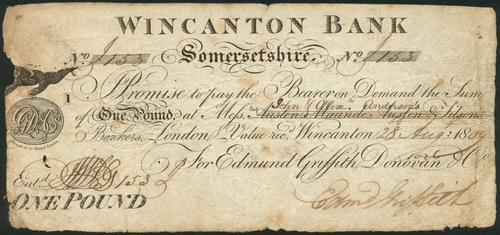 WINCANTON BANK
No. 1153 Somersetshire. No. 1153
I Promise to pay the Bearer on Demand the Sum
of One Pound, at Messrs. John & Alexr. Anderson's
Austen & Maunde Austen & Tilson
Bankers, London Value recd. Wincanton 28 Augt. 1809
For Edmund Griffith Donovan & Co.
Entd. 1153
ONE POUND Edmd. Griffith